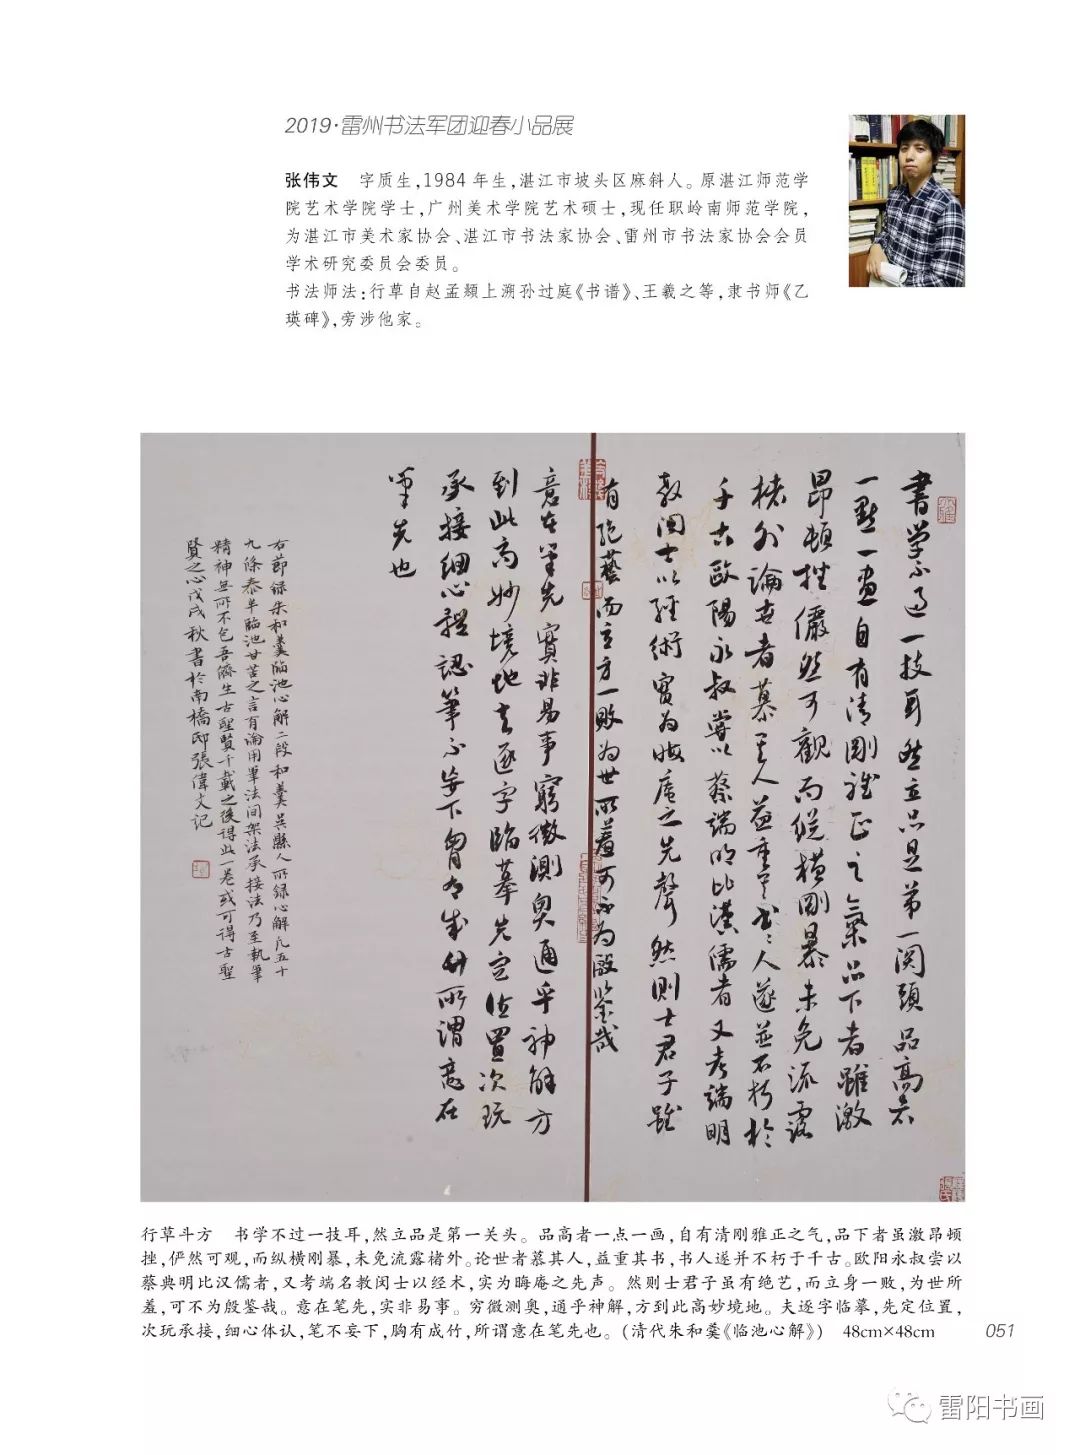 2019·雷州书法军团迎春小品展
张伟文 字质生，1984年生，湛江市坡头区麻斜人。原湛江师范学
院艺术学院学士，广州美术学院艺术硕士，现任职岭南师范学院，
为湛江市美术家协会、湛江市书法家协会、雷州市书法家协会会员
学术研究委员会委员。
书法师法：行草自赵孟頫上溯孙过庭《书谱》、王羲之等，隶书师《乙
瑛碑》，旁涉他家。
書学不过一技耳然立品是第一関頭品高者
一點一畫自有清剛雅正之氣品下者雖激
昂頓挫儼然可觀而縱橫剛暴未免流露
楮外論世者慕其人益重其書書人遂並不朽於
千古歐陽永叔嘗以蔡端明比漢儒者又考端明
教閩士以經術實為晦庵之先聲然則士君子雖
有絕藝而立身一敗為世所羞可不為殷鑒哉
意在筆先實非易事窮微測奥通乎神解方
到此高妙境地夫逐字臨摹先定位置次玩
承接細心體認筆不妄下胷有成竹所謂意在
筆先也
右節録朱和羹臨池心解二段和羹吴縣人所録心解凡五十
九條泰半臨池甘苦之言有論用筆法间架法承接法乃至執筆
精神無所不包吾儕生古聖賢千載之後得此一卷或可得古聖
賢之心戊戌秋書於南橋邸張偉文記
行草斗方 书学不过一技耳，然立品是第一关头。品高者一点一画，自有清刚雅正之气，品下者虽激昂顿
挫，俨然可观，而纵横刚暴，未免流露褚外。论世者慕其人，益重其书，书人遂并不朽于千古。欧阳永叔尝以
蔡典明比汉儒者，又考端名教闵士以经术，实为晦庵之先声。然则士君子虽有绝艺，而立身一败，为世所
羞，可不为殷鉴哉。意在笔先，实非易事。穷微测奥，通乎神解，方到此高妙境地。夫逐字临摹，先定位置，
次玩承接，细心体认，笔不妄下，胸有成竹，所谓意在笔先也。（清代朱和羹《临池心解》） 48cm×48cm
051
雷阳书画